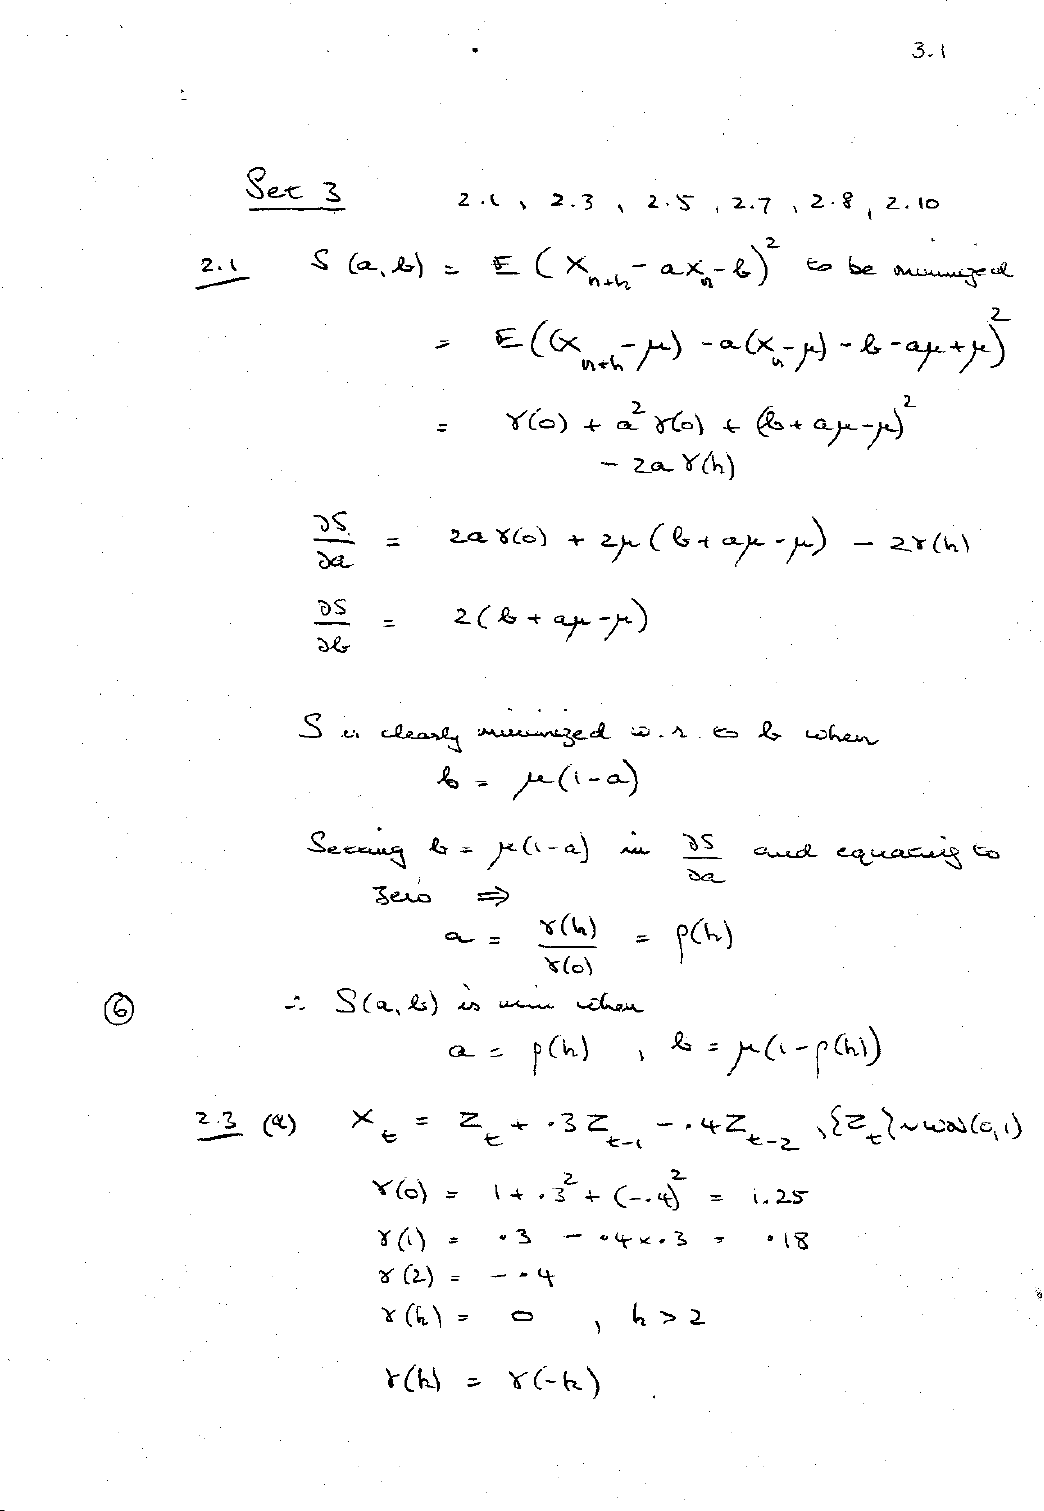 3.1
Set 3 2.1, 2.3, 2.5, 2.7, 2.8, 2.10
2.1 S(a, b) = E(X_{n+h} - aX_n - b)^2 to be minimized
= E((X_{n+h} - μ) - a(X_n - μ) - b - aμ + μ)^2
= γ(0) + a^2 γ(0) + (b + aμ - μ)^2
- 2a γ(h)
∂S/∂a = 2a γ(0) + 2μ(b + aμ - μ) - 2γ(h)
∂S/∂b = 2(b + aμ - μ)
S is clearly minimized w.r. to b when
b = μ(1-a)
Setting b = μ(1-a) in ∂S/∂a and equating to
zero ⇒
a = γ(h)/γ(0) = ρ(h)
⑥ ∴ S(a, b) is min when
a = ρ(h) , b = μ(1-ρ(h))
2.3 (a) X_t = Z_t + .3Z_{t-1} - .4Z_{t-2}, {Z_t} ~ WN(0,1)
γ(0) = 1 + .3^2 + (-.4)^2 = 1.25
γ(1) = .3 - .4 × .3 = .18
γ(2) = -.4
γ(h) = 0 , h > 2
γ(h) = γ(-h)